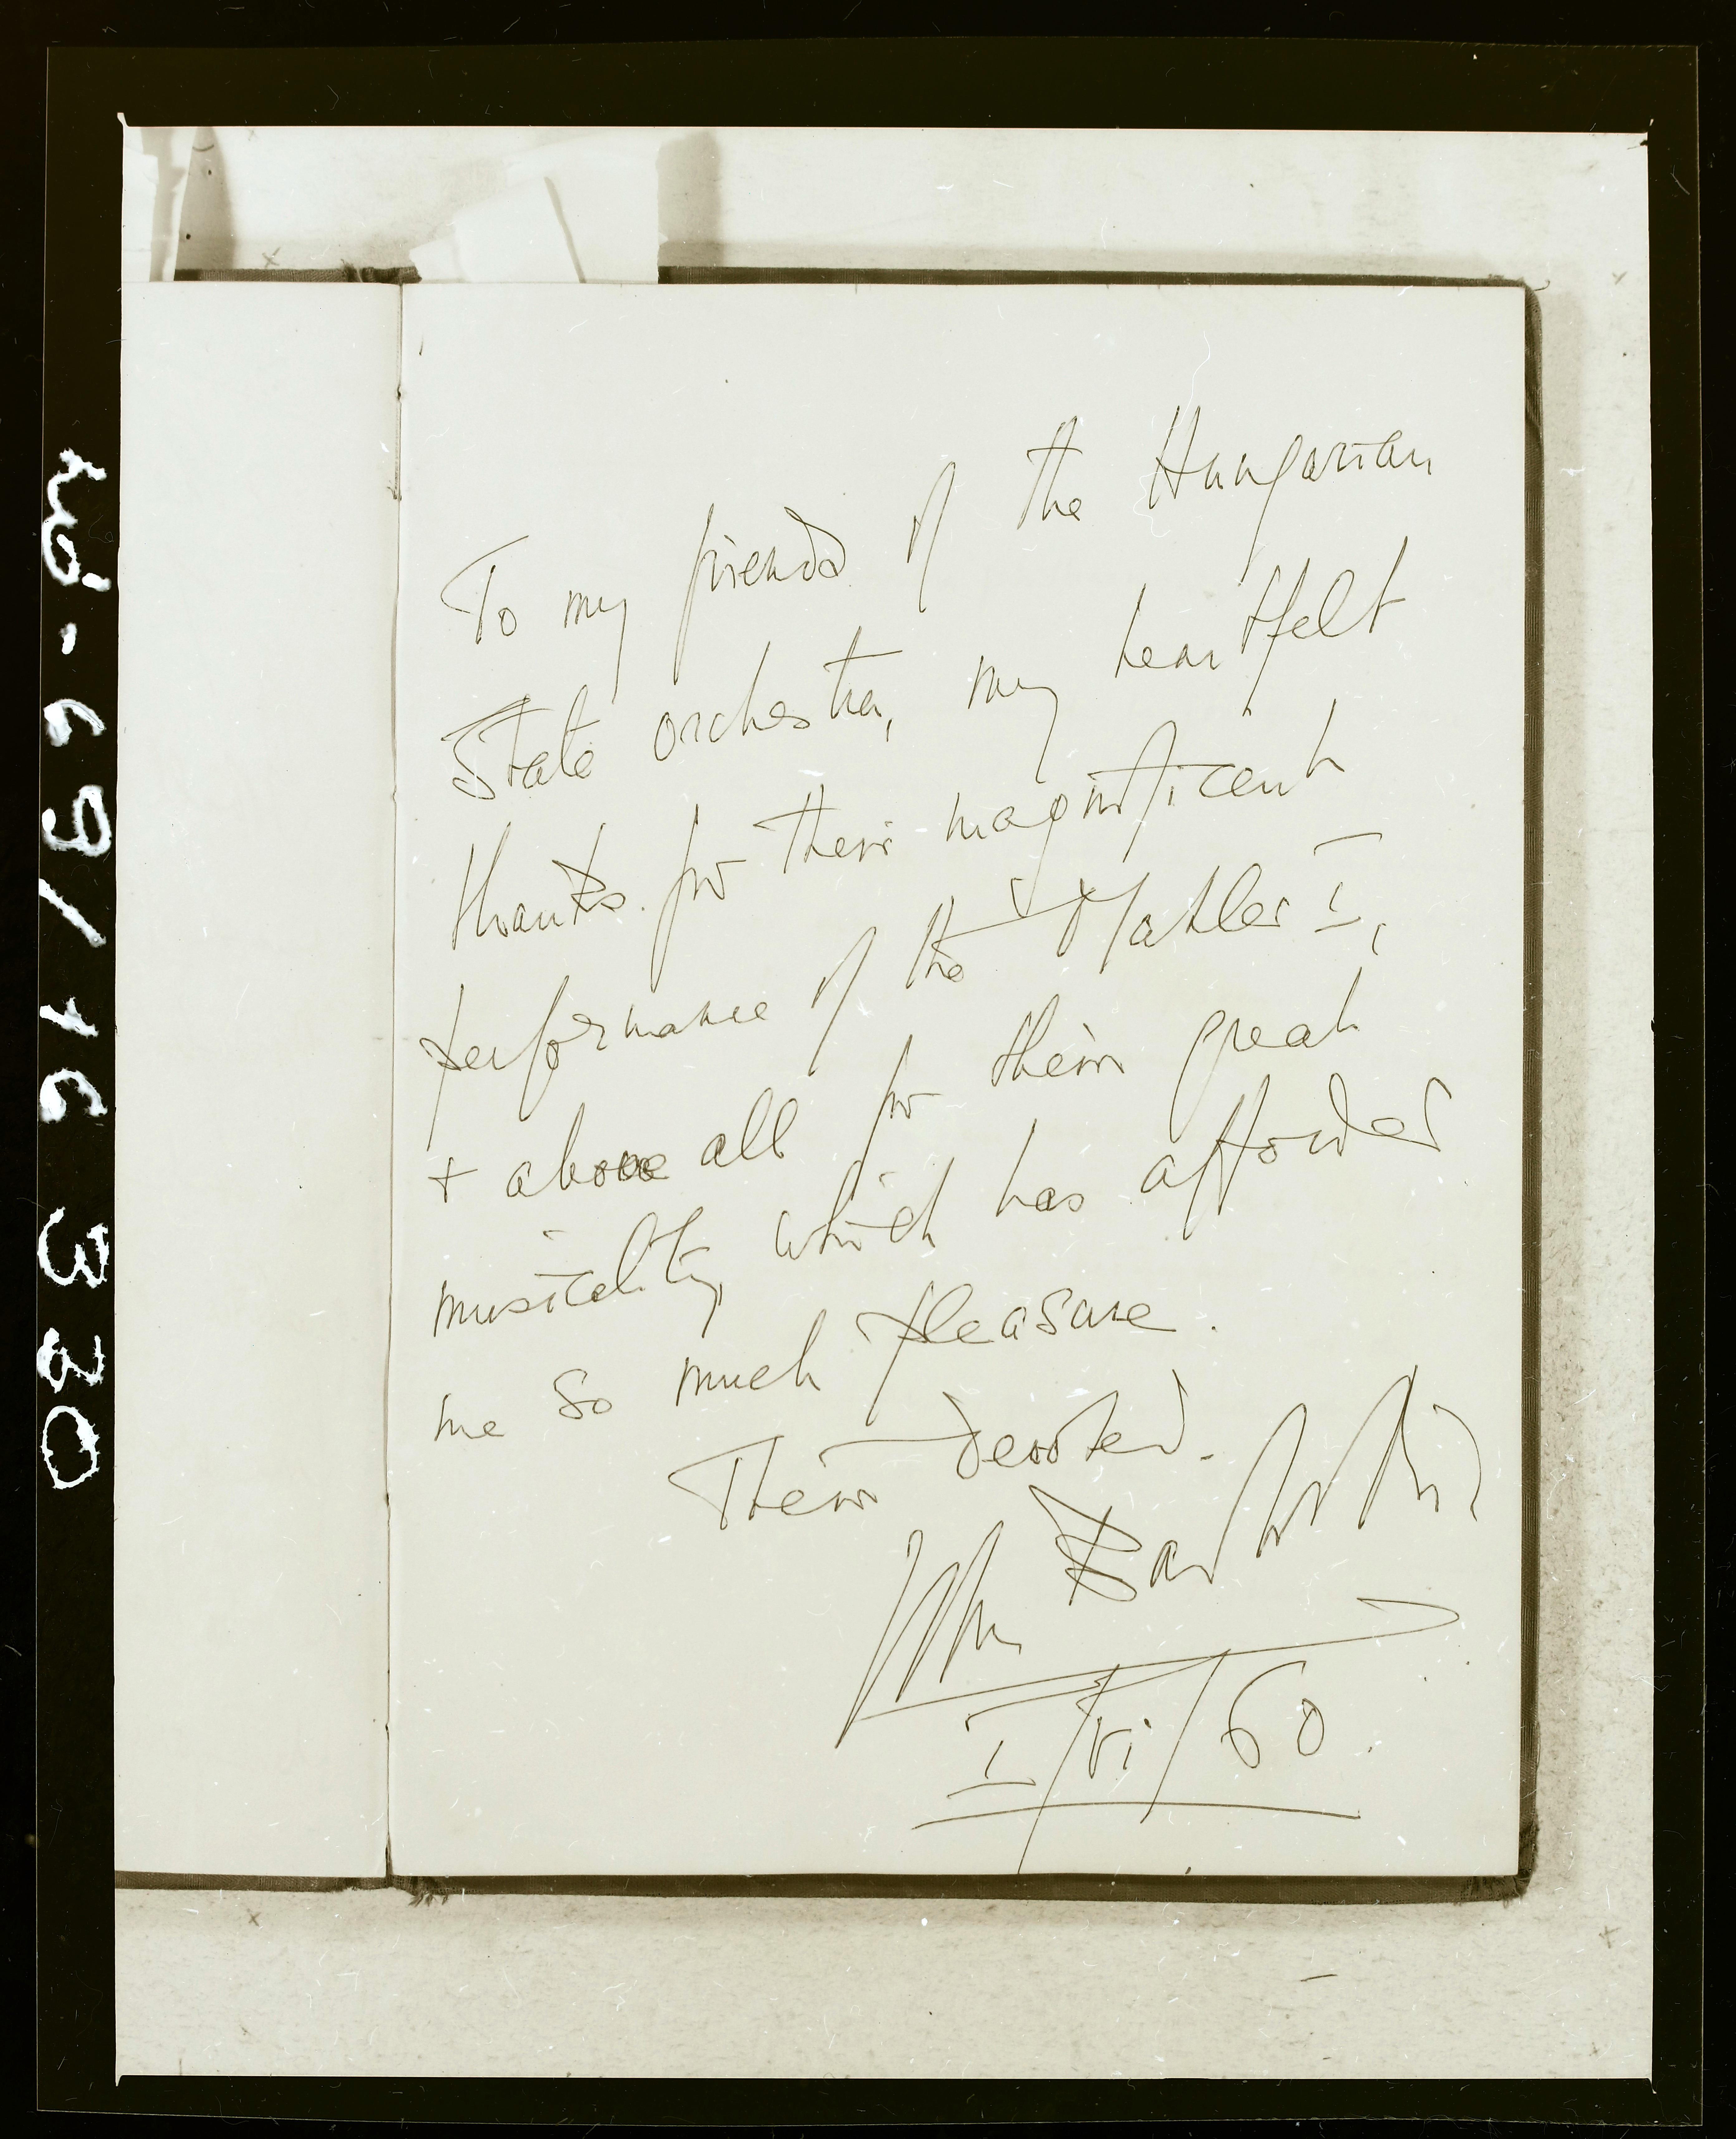 To my friends of the Hungarian
State orchestra, my heartfelt
thanks for their magnificent
performance of the Mahler I,
+ above all for their great
musicality, which has afforded
me so much pleasure.
Their devoted.
John Barbirolli
I/vi/60.